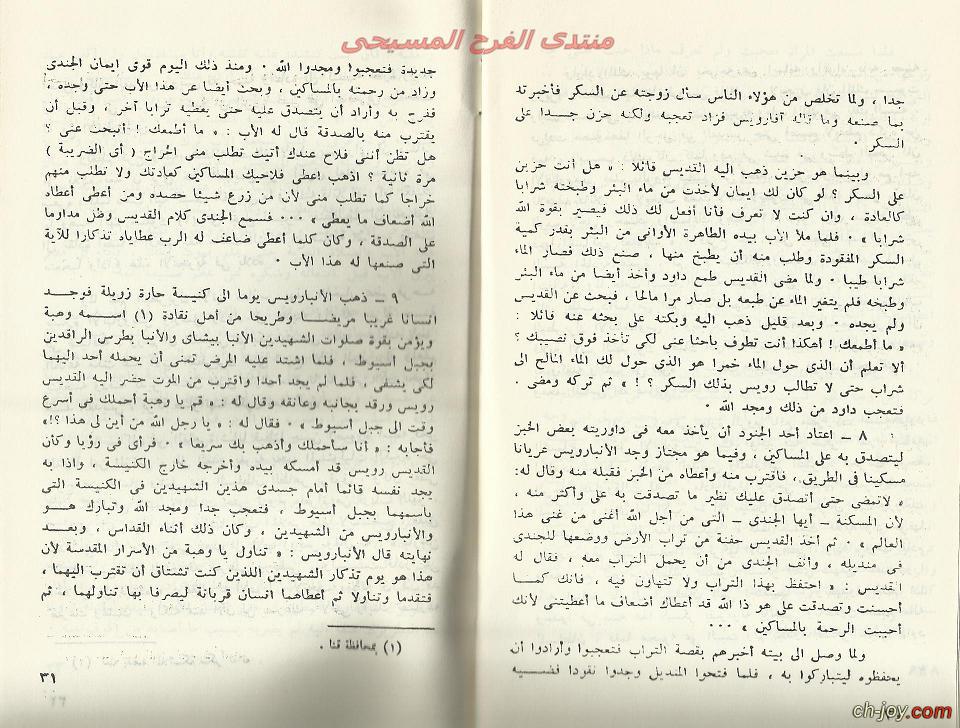 منتدى الفرح المسيحى
جدا ، ولما تخلص من هؤلاء الناس سأل زوجته عن السكر فأخبرته
بما صنعه وما قاله آفارويس فزاد تعجبه ولكنه حزن جسدا على
السكر ٠
وبينما هو حزين ذهب اليه القديس قائلا : « هل أنت حزين
على السكر ؟ لو كان لك ايمان لأخذت من ماء البئر وطبخته شرابا
كالعادة ، وان كنت لا تعرف فأنا أفعل لك ذلك فيصير بقوة الله
شرابا » ٠ فلما ملأ الأب بيده الطاهرة الأوانى من البئر بقدر كمية
السكر المفقودة وطلب منه أن يطبخ منها ، صنع ذلك فصار الماء
شرابا طيبا ٠ ولما مضى القديس طمع داود وأخذ أيضا من ماء البئر
وطبخه فلم يتغير الماء عن طبعه بل صار مرا مالحا ، فبحث عن القديس
ولم يجده ٠ وبعد قليل ذهب اليه وبكته على بحثه عنه قائلا :
« ما أطمعك ! أهكذا أنت تطوف باحثا عنى لكى تأخذ فوق نصيبك ؟
ألا تعلم أن الذى حول الماء خمرا هو الذى حول لك الماء المالح الى
شراب حتى لا تطالب رويس بذلك السكر ؟ ! » ثم تركه ومضى ٠
فتعجب داود من ذلك ومجد الله ٠
٨ ــ اعتاد أحد الجنود أن يأخذ معه فى داوريته بعض الخبز
ليتصدق به على المساكين ، وفيما هو مجتاز وجد الأنبارويس عريانا
مسكينا فى الطريق ، فاقترب منه وأعطاه من الخبز فقبله منه وقال له :
« لاتمضى حتى أتصدق عليك نظير ما تصدقت به على وأكثر منه ،
لأن المسكنة ــ أيها الجندى ــ التى من أجل الله أغنى من غنى هذا
العالم » ٠ ثم أخذ القديس حفنة من تراب الأرض ووضعها للجندى
فى منديله ، وأنف الجندى من أن يحمل التراب معه ، فقال له
القديس : « احتفظ بهذا التراب ولا تتهاون فيه ، فانك كمسا
أحسنت وتصدقت على هو ذا الله قد أعطاك أضعاف ما أعطيتنى لأنك
أحببت الرحمة بالمساكين » ٠٠٠
ولما وصل الى بيته أخبرهم بقصة التراب فتعجبوا وأرادوا أن
يحفظوه ليتباركوا به ، فلما فتحوا المنديل وجدوا نقودا فضيه
جديدة فتعجبوا ومجدوا الله ٠ ومنذ ذلك اليوم قوى ايمان الجندى
وزاد من رحمته بالمساكين ، وبحث أيضا عن هذا الأب حتى وجده ،
ففرح به وأراد أن يتصدق عليه حتى يعطيه ترابا آخر ، وقبل أن
يقترب منه بالصدقة قال له الأب : « ما أطمعك ! أتبحث عنى ؟
هل تظن أننى فلاح عندك أتيت تطلب منى الخراج ( أى الضريبة )
مرة ثانية ؟ اذهب اعطى فلاحيك المساكين كعادتك ولا تطلب منهم
خراجا كما تطلب منى لأن من زرع شيئا حصده ومن أعطى أعطاه
الله أضعاف ما يعطى » ٠٠٠ فسمع الجندى كلام القديس وظل مداوما
على الصدقة ، وكان كلما أعطى ضاعف له الرب عطاياه تذكارا للآية
التى صنعها له هذا الأب ٠
٩ ــ ذهب الأنبارويس يوما الى كنيسة حارة زويلة فوجد
انسانا غريبا مريضا وطريحا من أهل نقادة (١) اسمه وهبة
ويؤمن بقوة صلوات الشهيدين الأنبا بيشاى والأنبا بطرس الراقدين
بجبل أسيوط ، فلما اشتد عليه المرض تمنى أن يحمله أحد اليهما
لكى يشفى ، فلما لم يجد أحدا واقترب من الموت حضر اليه القديس
رويس ورقد بجانبه وعانقه وقال له : « قم يا وهبة أحملك فى أسرع
وقت الى جبل أسيوط » ٠ فقال له : « يا رجل الله من أين لى هذا ؟! »
فأجابه : « أنا سأحملك وأذهب بك سريعا » ٠ فرأى فى رؤيا وكأن
القديس رويس قد أمسكه بيده وأخرجه خارج الكنيسة ، واذا به
يجد نفسه قائما أمام جسدى هذين الشهيدين فى الكنيسة التى
باسمهما بجبل أسيوط ، فتعجب جدا ومجد الله وتبارك هــو
والأنبارويس من الشهيدين ، وكان ذلك أثناء القداس ، وبعــد
نهايته قال الأنبارويس : « تناول يا وهبة من الأسرار المقدسة لأن
هذا هو يوم تذكار الشهيدين اللذين كنت تشتاق أن تقترب اليهما ،
فتقدما وتناولا ثم أعطاهما انسان قربانة ليصرفا بها تناولهما ، ثم
(١) بمحافظة قنا ٠
٣١
ch-joy.com